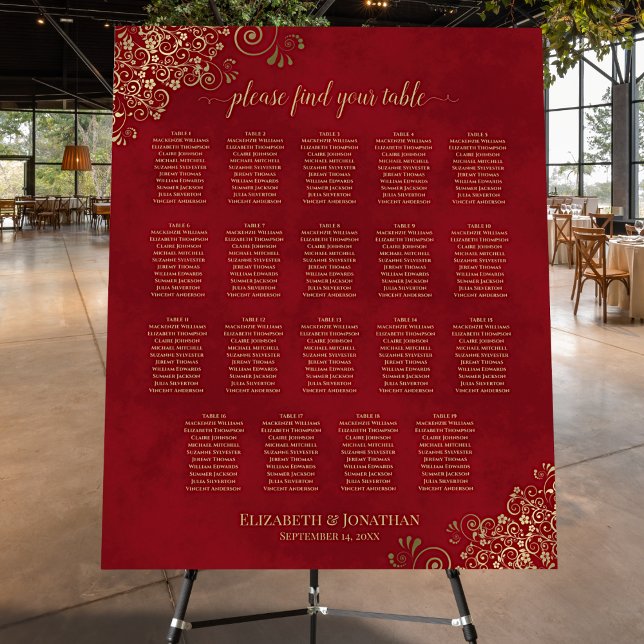 please find your table
TABLE 1
Mackenzie Williams
Elizabeth Thompson
Claire Johnson
Michael Mitchell
Suzanne Sylvester
Jeremy Thomas
William Edwards
Summer Jackson
Julia Silverton
Vincent Anderson
TABLE 2
Mackenzie Williams
Elizabeth Thompson
Claire Johnson
Michael Mitchell
Suzanne Sylvester
Jeremy Thomas
William Edwards
Summer Jackson
Julia Silverton
Vincent Anderson
TABLE 3
Mackenzie Williams
Elizabeth Thompson
Claire Johnson
Michael Mitchell
Suzanne Sylvester
Jeremy Thomas
William Edwards
Summer Jackson
Julia Silverton
Vincent Anderson
TABLE 4
Mackenzie Williams
Elizabeth Thompson
Claire Johnson
Michael Mitchell
Suzanne Sylvester
Jeremy Thomas
William Edwards
Summer Jackson
Julia Silverton
Vincent Anderson
TABLE 5
Mackenzie Williams
Elizabeth Thompson
Claire Johnson
Michael Mitchell
Suzanne Sylvester
Jeremy Thomas
William Edwards
Summer Jackson
Julia Silverton
Vincent Anderson
TABLE 6
Mackenzie Williams
Elizabeth Thompson
Claire Johnson
Michael Mitchell
Suzanne Sylvester
Jeremy Thomas
William Edwards
Summer Jackson
Julia Silverton
Vincent Anderson
TABLE 7
Mackenzie Williams
Elizabeth Thompson
Claire Johnson
Michael Mitchell
Suzanne Sylvester
Jeremy Thomas
William Edwards
Summer Jackson
Julia Silverton
Vincent Anderson
TABLE 8
Mackenzie Williams
Elizabeth Thompson
Claire Johnson
Michael Mitchell
Suzanne Sylvester
Jeremy Thomas
William Edwards
Summer Jackson
Julia Silverton
Vincent Anderson
TABLE 9
Mackenzie Williams
Elizabeth Thompson
Claire Johnson
Michael Mitchell
Suzanne Sylvester
Jeremy Thomas
William Edwards
Summer Jackson
Julia Silverton
Vincent Anderson
TABLE 10
Mackenzie Williams
Elizabeth Thompson
Claire Johnson
Michael Mitchell
Suzanne Sylvester
Jeremy Thomas
William Edwards
Summer Jackson
Julia Silverton
Vincent Anderson
TABLE 11
Mackenzie Williams
Elizabeth Thompson
Claire Johnson
Michael Mitchell
Suzanne Sylvester
Jeremy Thomas
William Edwards
Summer Jackson
Julia Silverton
Vincent Anderson
TABLE 12
Mackenzie Williams
Elizabeth Thompson
Claire Johnson
Michael Mitchell
Suzanne Sylvester
Jeremy Thomas
William Edwards
Summer Jackson
Julia Silverton
Vincent Anderson
TABLE 13
Mackenzie Williams
Elizabeth Thompson
Claire Johnson
Michael Mitchell
Suzanne Sylvester
Jeremy Thomas
William Edwards
Summer Jackson
Julia Silverton
Vincent Anderson
TABLE 14
Mackenzie Williams
Elizabeth Thompson
Claire Johnson
Michael Mitchell
Suzanne Sylvester
Jeremy Thomas
William Edwards
Summer Jackson
Julia Silverton
Vincent Anderson
TABLE 15
Mackenzie Williams
Elizabeth Thompson
Claire Johnson
Michael Mitchell
Suzanne Sylvester
Jeremy Thomas
William Edwards
Summer Jackson
Julia Silverton
Vincent Anderson
TABLE 16
Mackenzie Williams
Elizabeth Thompson
Claire Johnson
Michael Mitchell
Suzanne Sylvester
Jeremy Thomas
William Edwards
Summer Jackson
Julia Silverton
Vincent Anderson
TABLE 17
Mackenzie Williams
Elizabeth Thompson
Claire Johnson
Michael Mitchell
Suzanne Sylvester
Jeremy Thomas
William Edwards
Summer Jackson
Julia Silverton
Vincent Anderson
TABLE 18
Mackenzie Williams
Elizabeth Thompson
Claire Johnson
Michael Mitchell
Suzanne Sylvester
Jeremy Thomas
William Edwards
Summer Jackson
Julia Silverton
Vincent Anderson
TABLE 19
Mackenzie Williams
Elizabeth Thompson
Claire Johnson
Michael Mitchell
Suzanne Sylvester
Jeremy Thomas
William Edwards
Summer Jackson
Julia Silverton
Vincent Anderson
Elizabeth & Jonathan
September 14, 20XX